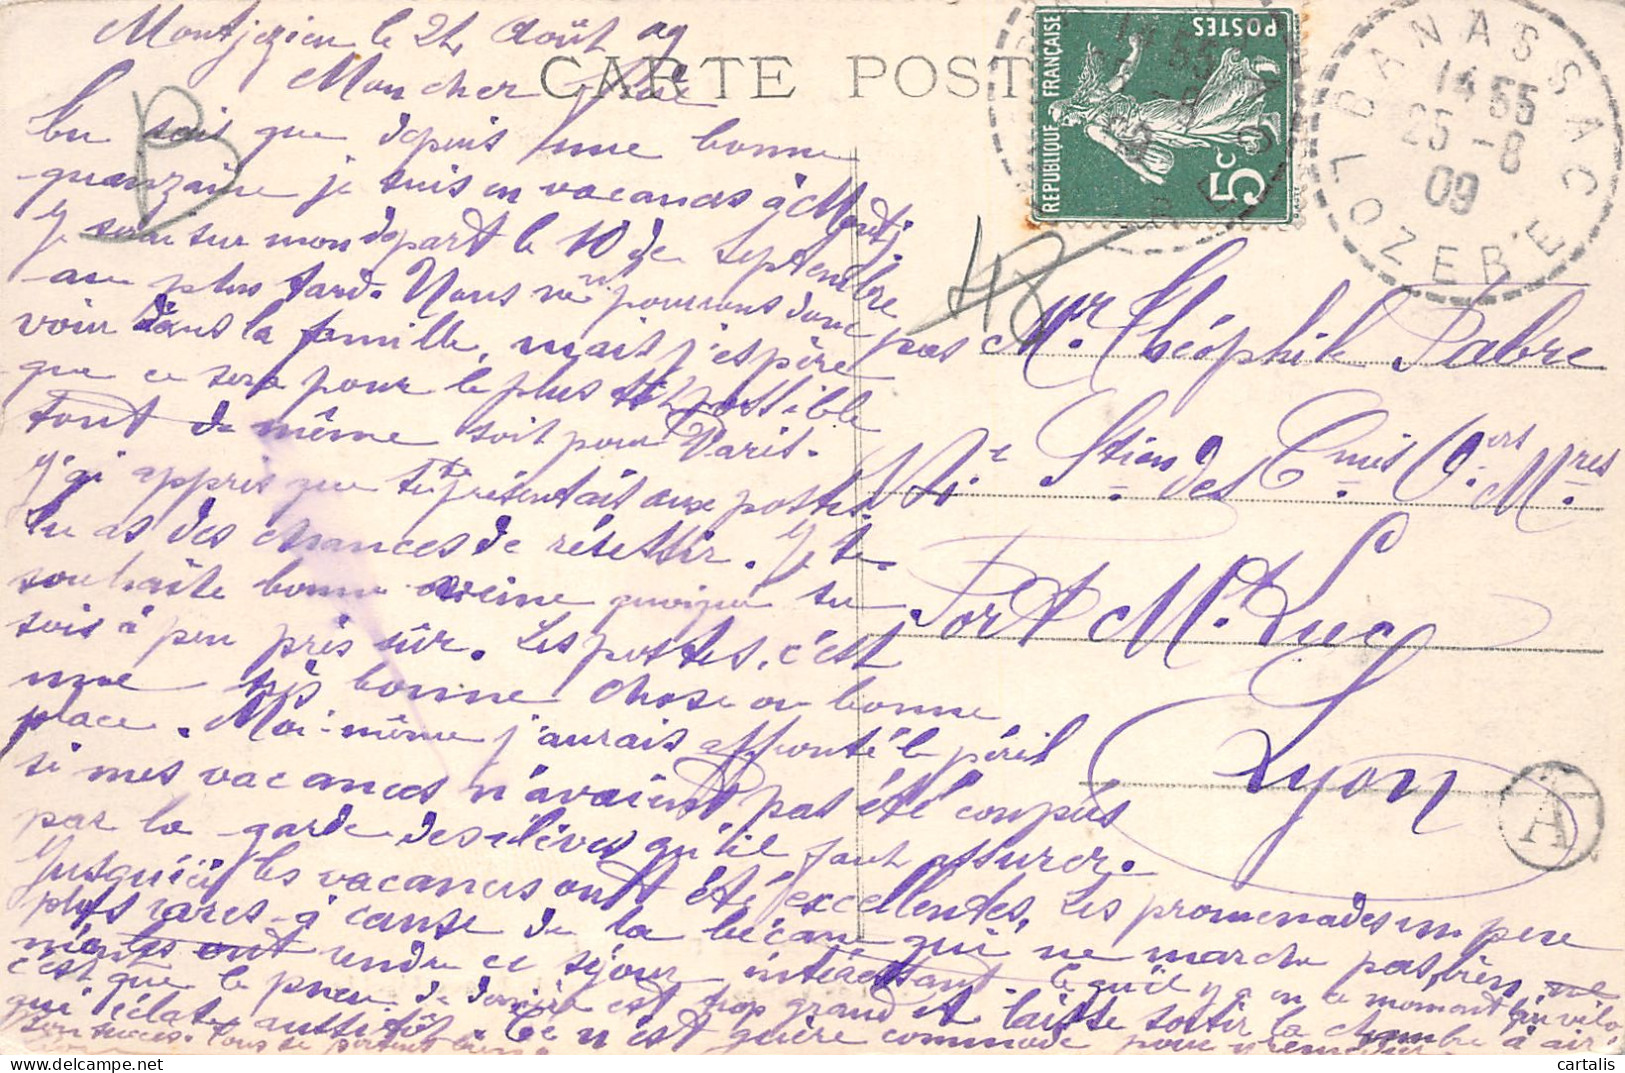 Montjézieu le 24 Août 09
CARTE POST
Mon cher
Tu sais que depuis une bonne
quinzaine je suis en vacances à Montj.
Je suis sur mon départ le 10 de Septembre
au plus tard. Nous ne pourrons donc pas
voir dans la famille, mais j'espère
que ce sera pour le plus tôt possible
tout de même soit pour Paris.
J'ai appris que tu te présentais aux postes.
Tu as des chances de réussir. Je te
souhaite bonne veine quoique tu
sois à peu près sûr. Les postes, c'est
une très bonne chose ou bonne
place. Moi-même j'aurais affronté le péril
si mes vacances n'avaient pas été coupées
par la garde des élèves qu'il faut assurer.
Jusqu'ici les vacances ont été excellentes. Les promenades un peu
plus rares à cause de la bécane qui ne marche pas bien
m'ont rendu ce séjour intéressant. Ce qu'il y a en ce moment au vélo
c'est que le pneu de derrière est trop grand et laisse sortir la chambre à air
qui éclate aussitôt. Ce n'est guère commode pour
son succès. Tous se portent bien.
REPUBLIQUE FRANÇAISE
POSTES
5c
BANASSAC
14 55
25 -8
09
LOZERE
Mr. Théophile Fabre
St. Etien des Cmis Ors. Mres
Fort M. Luc
Lyon
A
B
cartalis
www.delcampe.net